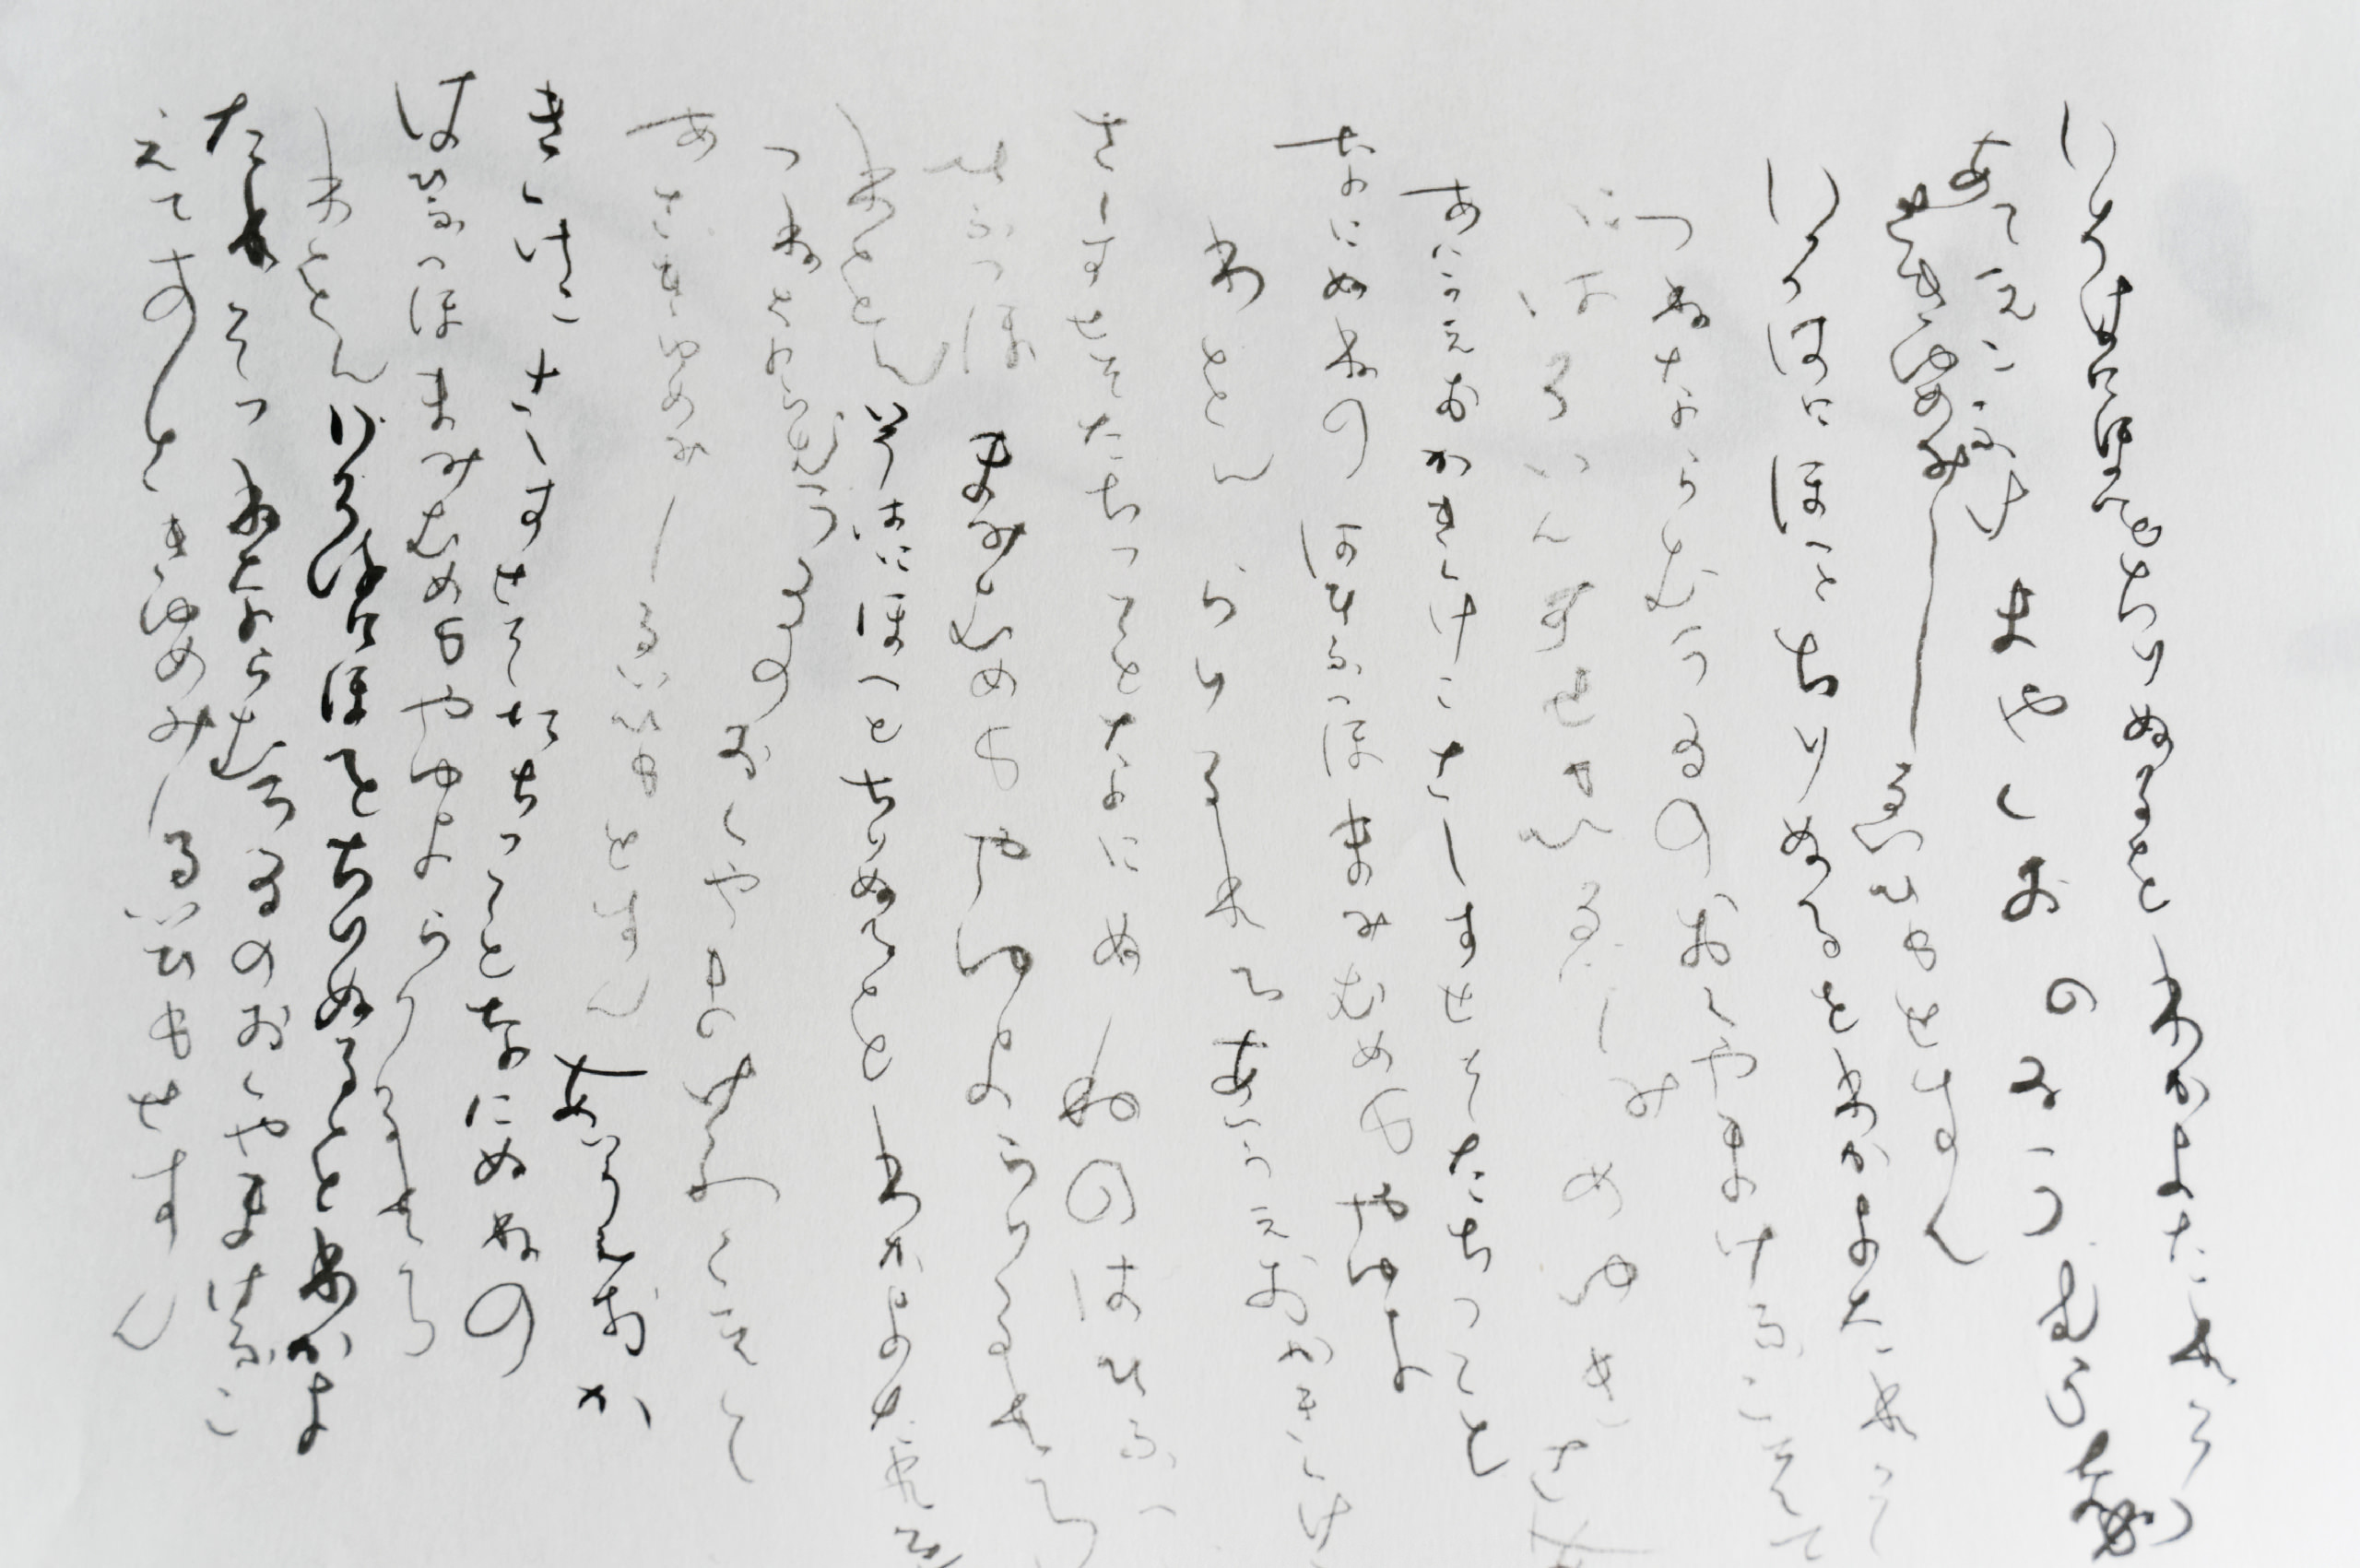 いろはにほへとちりぬるをわかよたれそつ
あてえこふけまやくおのゐうむらなね
さきゆめみしゑひもせすん
いろはにほへとちりぬるをわかよたれそ
つねならむうゐのおくやまけふこえて
にはろいんすせもひゑしみめゆきさ
あいうえおかきくけこさしすせそたちつてと
なにぬねのはひふへほまみむめもやゆよ
わをんらりるれろあいうえおかきくけ
さしすせそたちつてとなにぬねのはひふ
ひふへほまみむめもやゆよらりるれろ
わをんいろはにほへとちりぬるをわかよたれそ
つねならむうゐのおくやまけふこえて
あさきゆめみしゑひもせすん
あいうえおか
きくけこさしすせそたちつてとなにぬねの
はひふへほまみむめもやゆよらりるれろ
わをんいろはにほへとちりぬるをわかよ
たれそつねならむうゐのおくやまけふこ
えてあさきゆめみしゑひもせすん